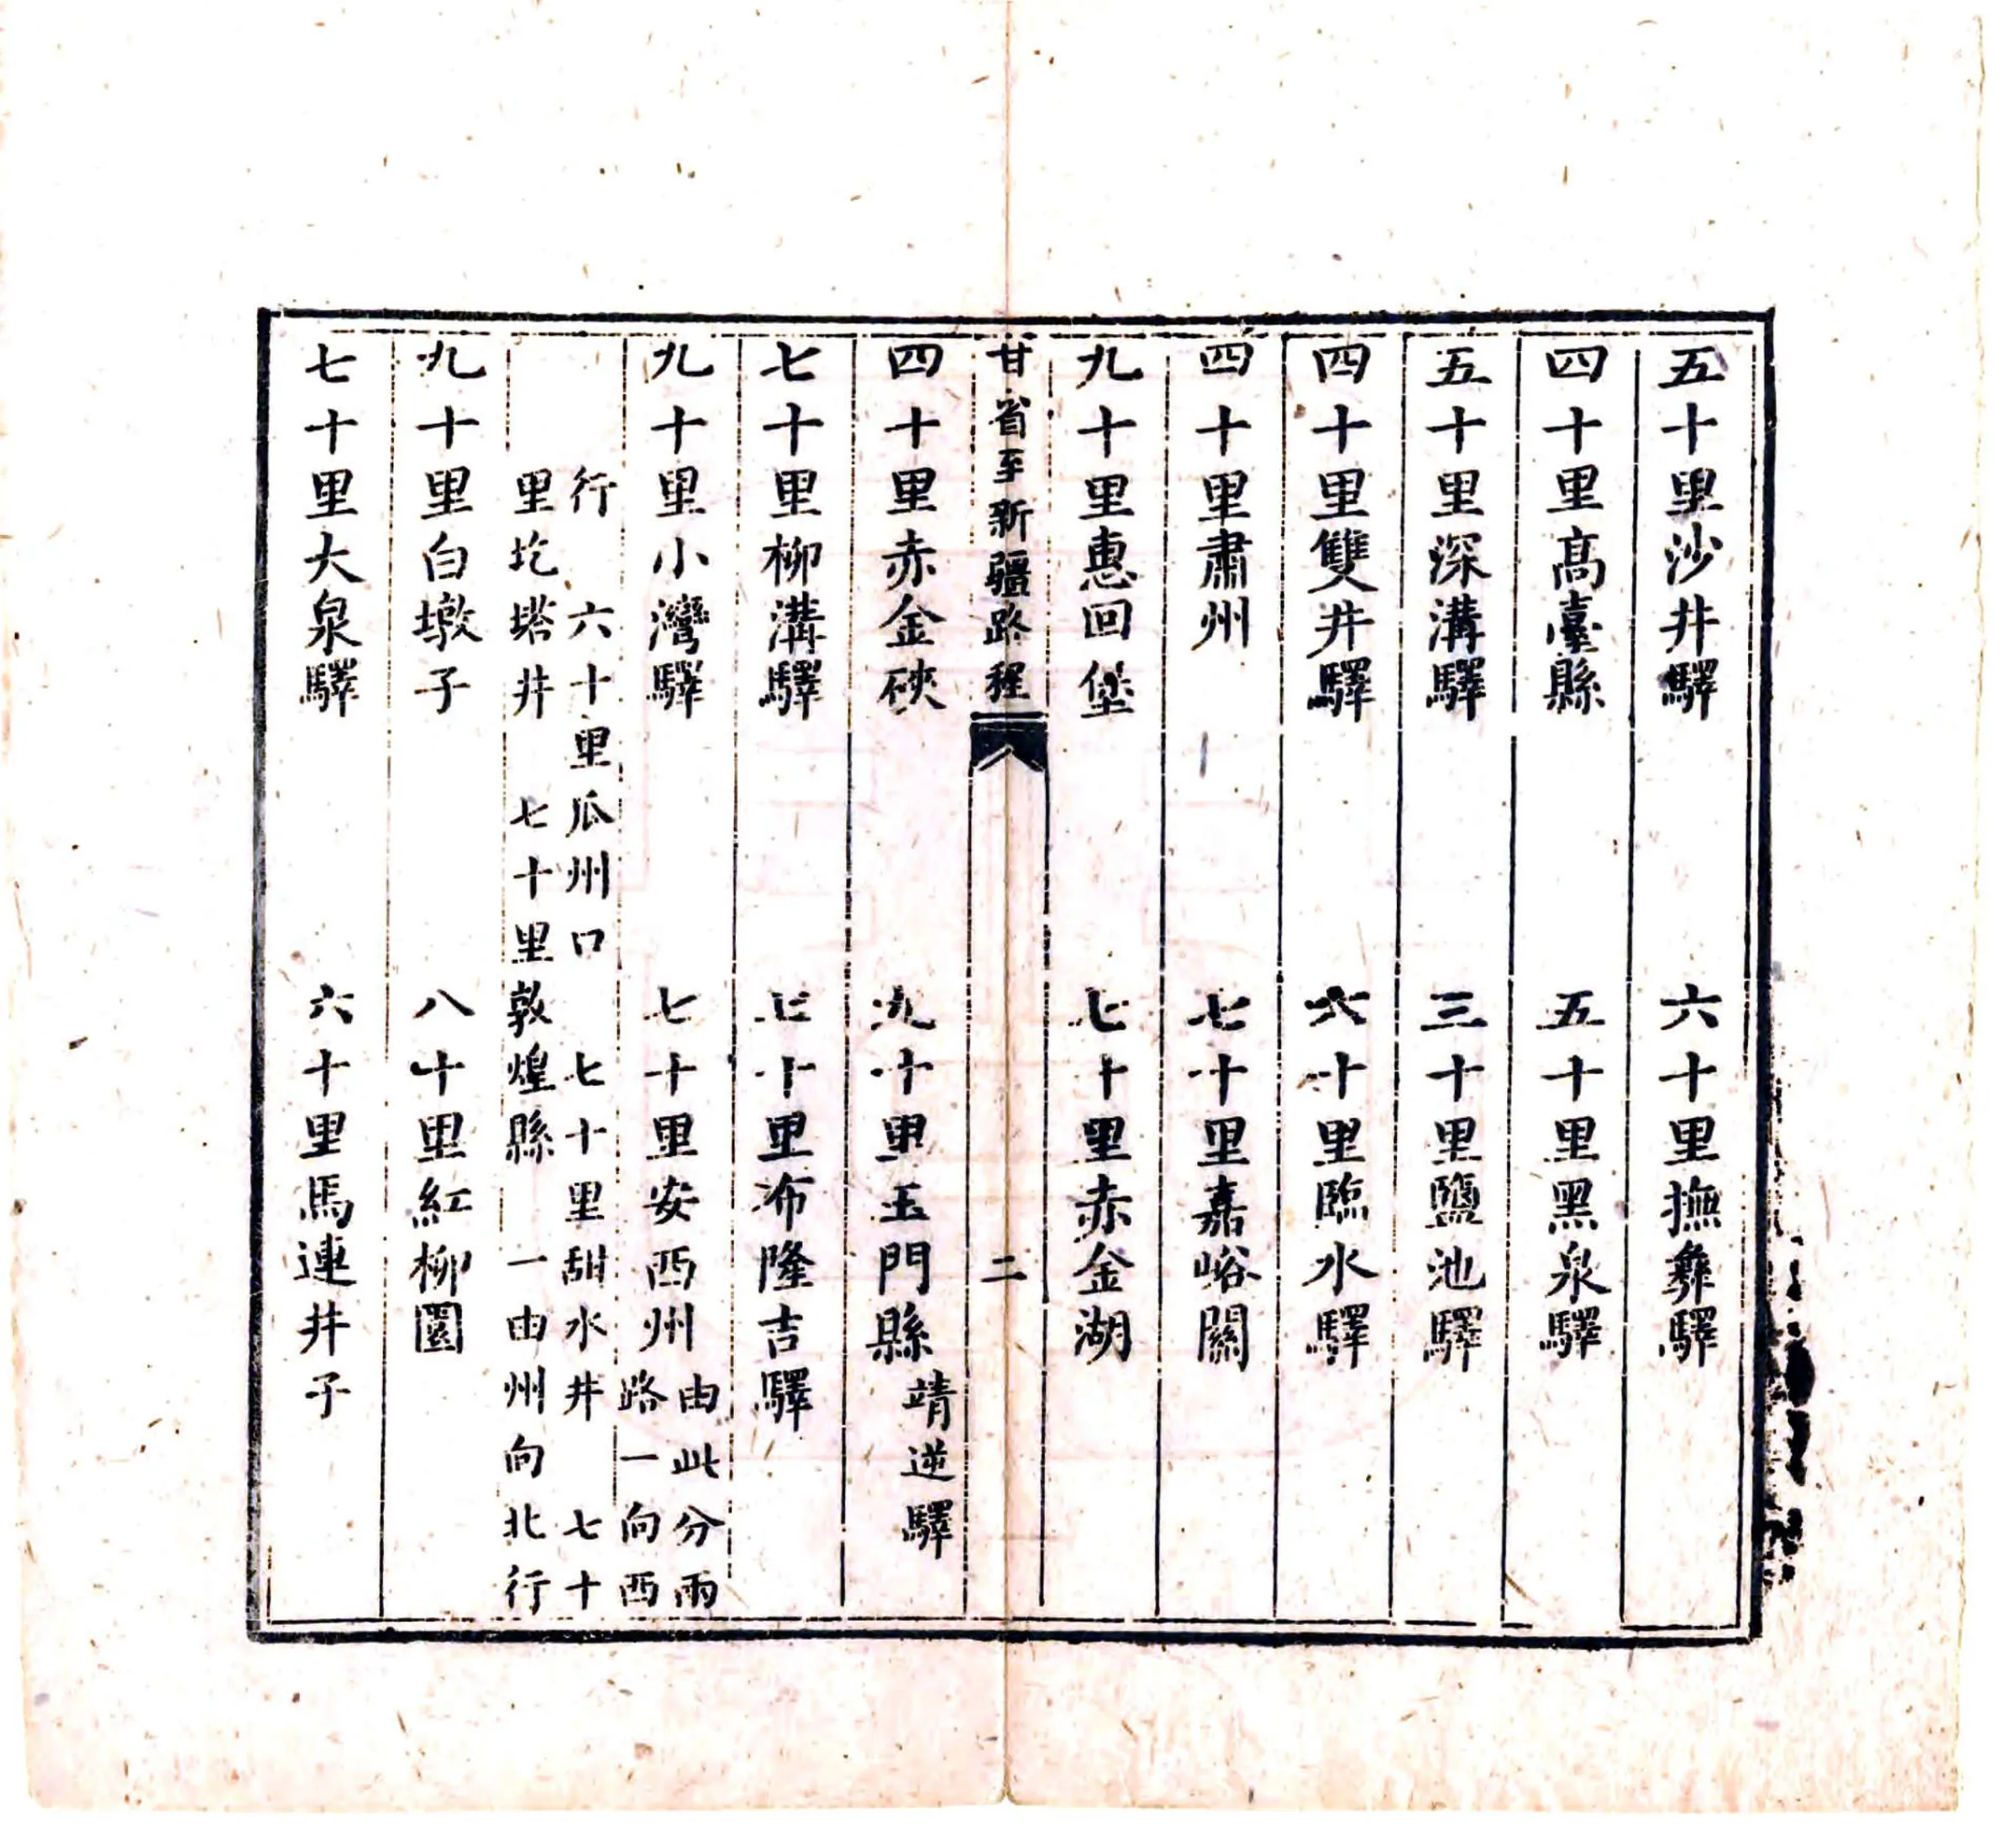 五十里沙井驛　六十里撫彝驛
四十里高臺縣　五十里黑泉驛
五十里深溝驛　三十里鹽池驛
四十里雙井驛　六十里臨水驛
四十里肅州　七十里嘉峪關
九十里惠回堡　七十里赤金湖
甘省至新疆路程　二
四十里赤金硤　九十里玉門縣靖逆驛
七十里柳溝驛　七十里布隆吉驛
九十里小灣驛　七十里安西州由此分兩
路一向西
行　六十里瓜州口　七十里甜水井　七十
里圪塔井　七十里敦煌縣　一由州向北行
九十里白墩子　八十里紅柳園
七十里大泉驛　六十里馬連井子